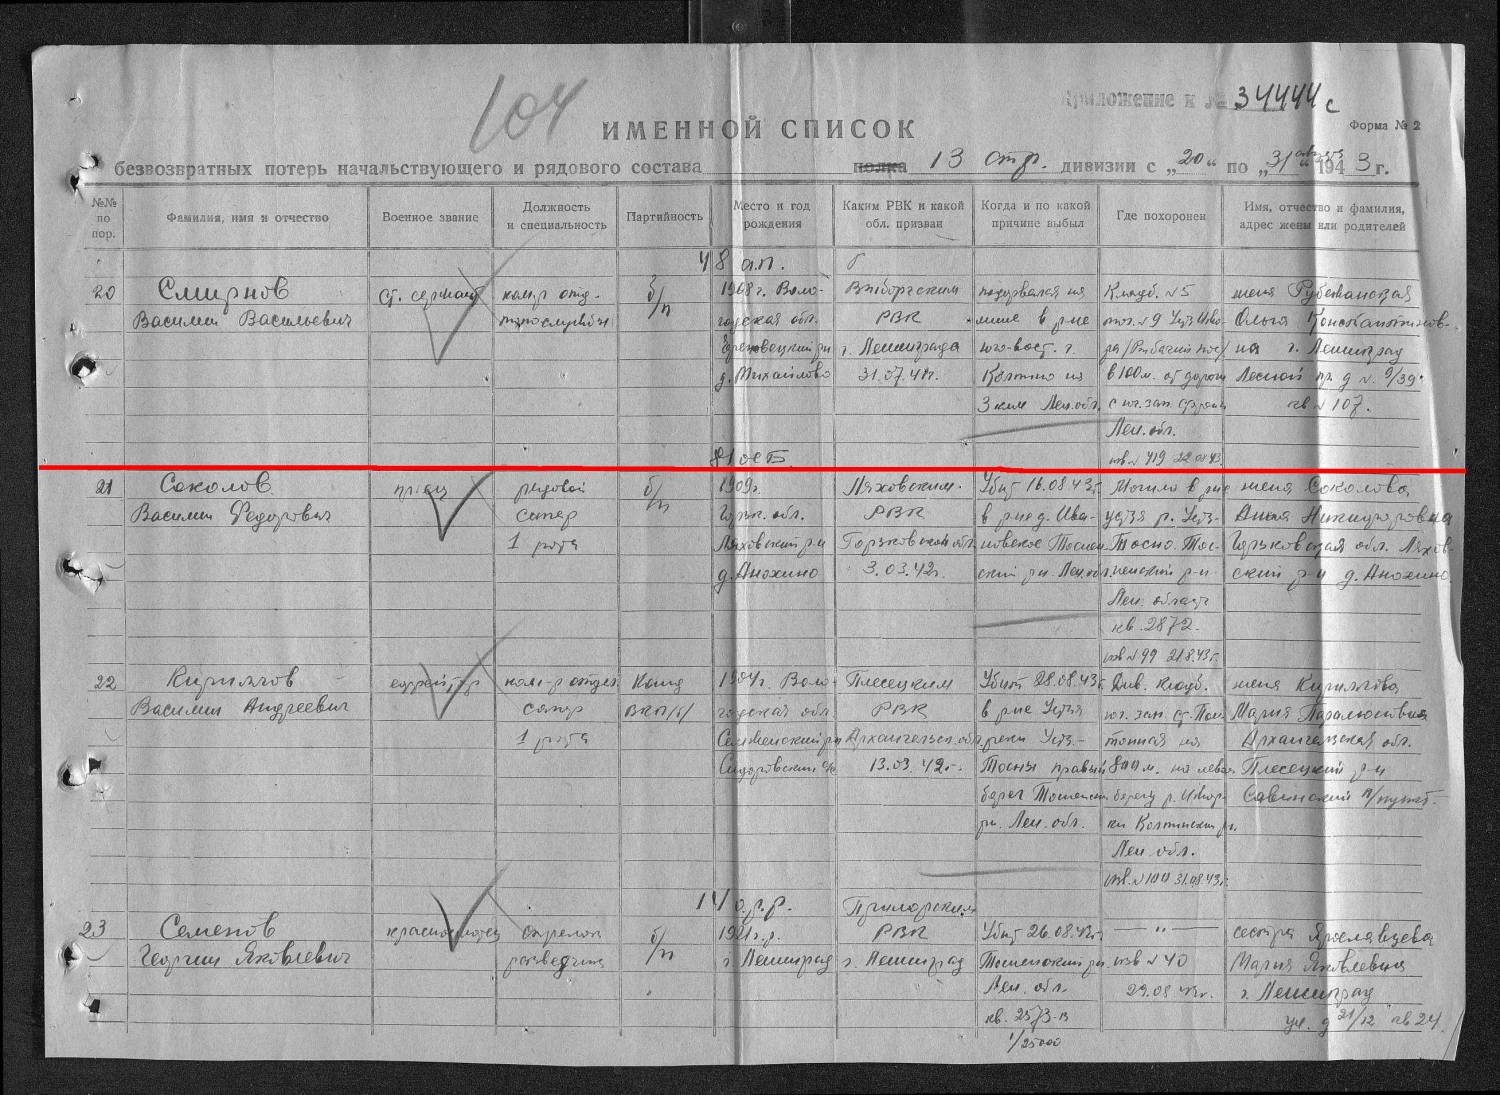 104
Приложение к № 34444 с
ИМЕННОЙ СПИСОК
Форма № 2
безвозвратных потерь начальствующего и рядового состава полка 13 стр. дивизии с „20“ по „31“ августа 1943 г.
№№ по пор.
Фамилия, имя и отчество
Военное звание
Должность и специальность
Партийность
Место и год рождения
Каким РВК и какой обл. призван
Когда и по какой причине выбыл
Где похоронен
Имя, отчество и фамилия, адрес жены или родителей
48 а.п.
20
Смирнов
Василий Васильевич
ст. сержант
б/п
1908 г. Воло-
годская обл.
д. Михайлово
Выборгским
РВК
г. Ленинграда
31.07.41г.
подорвался на
мине в р-не
юго-вост. г.
Колпино на
3 клм Лен. обл.
Кладб. № 5
в 100 м. от дороги
с юг. зап. стороны
Лен. обл.
изв № 419 22.08.43
жена Рубежанская
Ольга Константинов-
на г. Ленинград
Лесной пр. д № 9/39
кв № 107.
21
Соколов
Василий Федорович
рядовой
сапер
1 рота
б/п
1909г.
Горьк. обл.
Ляховский р-н
д. Анохино
Ляховским
РВК
Горьковской обл.
3.03.42г.
Убит 16.08.43г.
в р-не д. Ива-
новское Тоснен-
ский р-н Лен. обл.
Могила в р-не
устья р. Усть-
Тосно. Тос-
ненский р-н
Лен. область
кв. 2872.
изв № 99 21.8.43г.
жена Соколова
Анна Никифоровна
Горьковская обл. Ляхов-
ский р-н д. Анохино
22
Кириллов
Василий Андреевич
ефрейтор
ком-р отдел.
сапер
1 рота
Канд
ВКП/б/
1904г. Воло-
годская обл.
Сидоровский с/с
Плесецким
РВК
Архангельск. обл.
13.03.42г.
Убит 28.08.43г.
в р-не Устья
реки Усть-
Тосны правый
берег Тосненск.
р-н. Лен. обл.
Див. кладб.
юг. зап. ст. Пон-
тонная на
800 м. на левом
берегу р. Ижор-
ки Колпинский р-н.
Лен. обл.
изв. № 100 31.08.43г.
жена Кириллова
Мария
Архангельская обл.
Плесецкий р-н
Савинский п/пункт.
14 о.р.р.
23
Семенов
Георгий Яковлевич
красноармеец
стрелок
разведчик
б/п
1921г.р.
г. Ленинград
Приморским
РВК
г. Ленинград
Убит 26.08.43г.
Тосненский р-н.
Лен. обл.
кв. 2573-в
1/25000
— „ —
изв № 40
29.08.43г.
сестра Ярославцева
Мария Яковлевна
г. Ленинград
ул. д 21/12 кв 24.